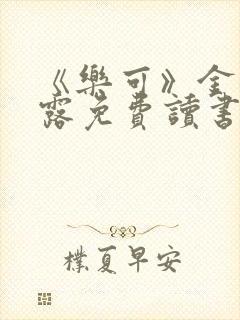 《樂可》金
露免費讀書
樸夏早安